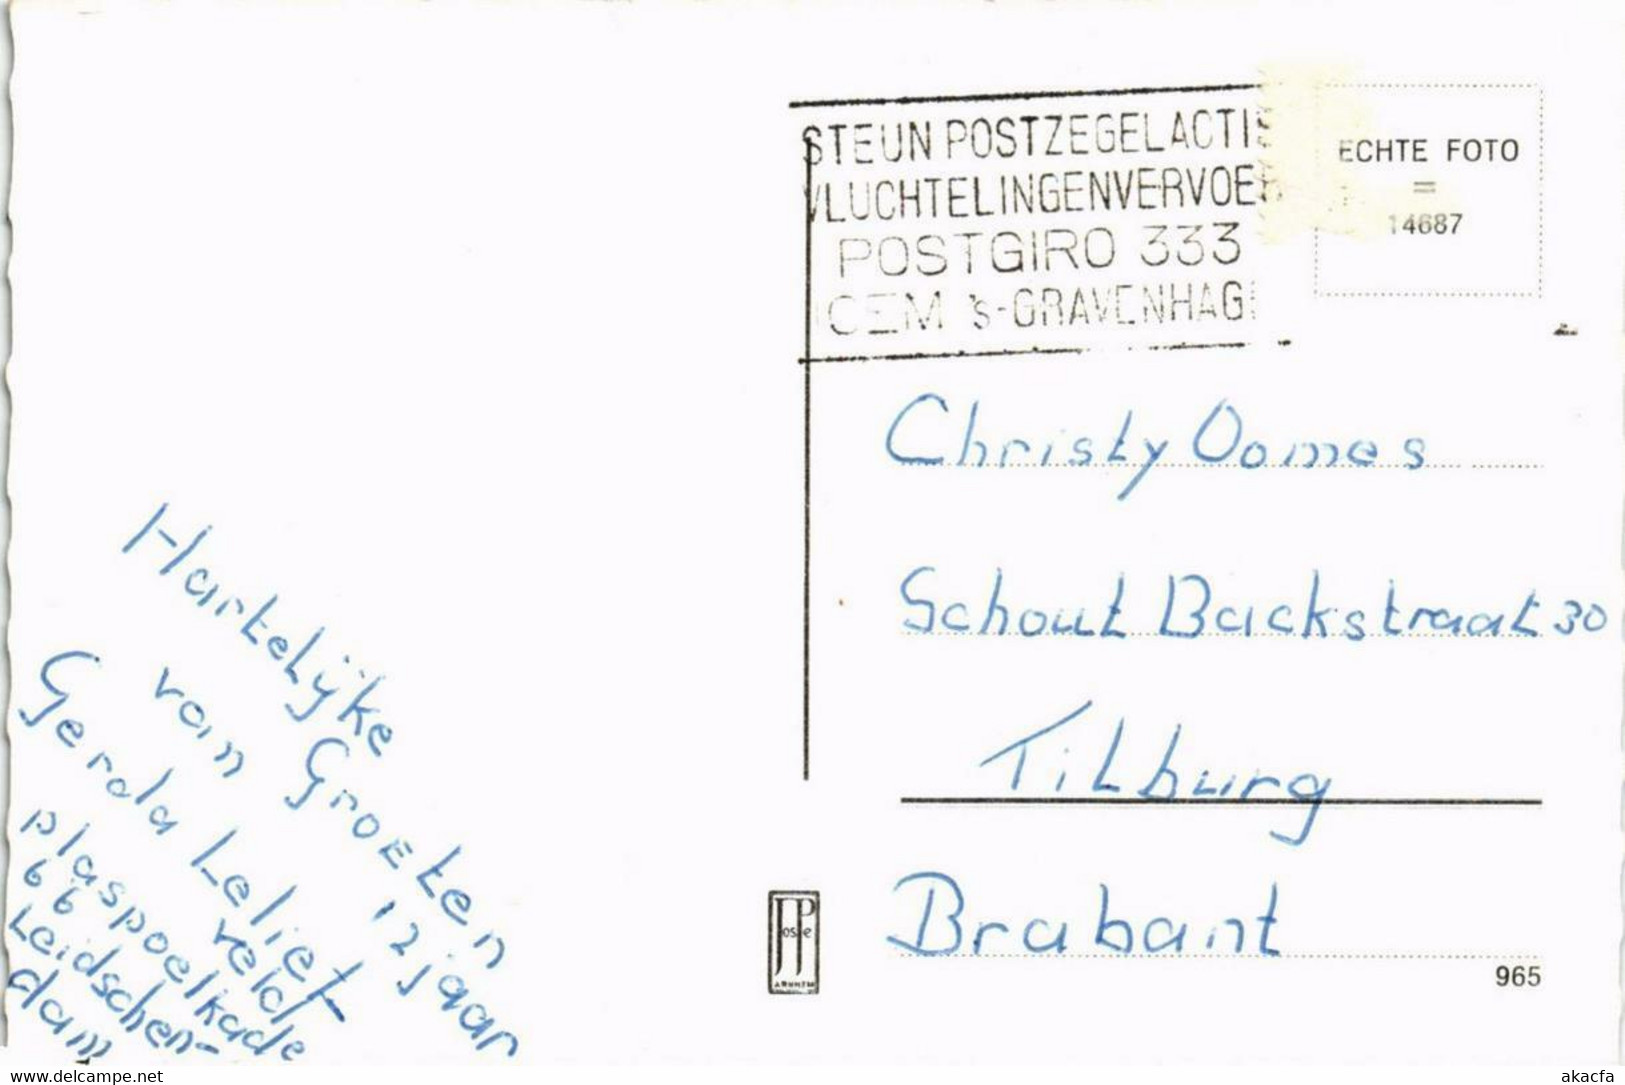 STEUN POSTZEGELACTIE
VLUCHTELINGENVERVOER
POSTGIRO 333
ICEM 's-GRAVENHAGE
ECHTE FOTO
=
14687
Christy Oomes
Schout Backstraat 30
Tilburg
Brabant
965
JosPe
ARNHEM
Hartelijke
Groeten
van
Gerda Leliet- 12 jaar
veld
plaspoelkade
66
Leidschen-
dam
www.delcampe.net
akacfa